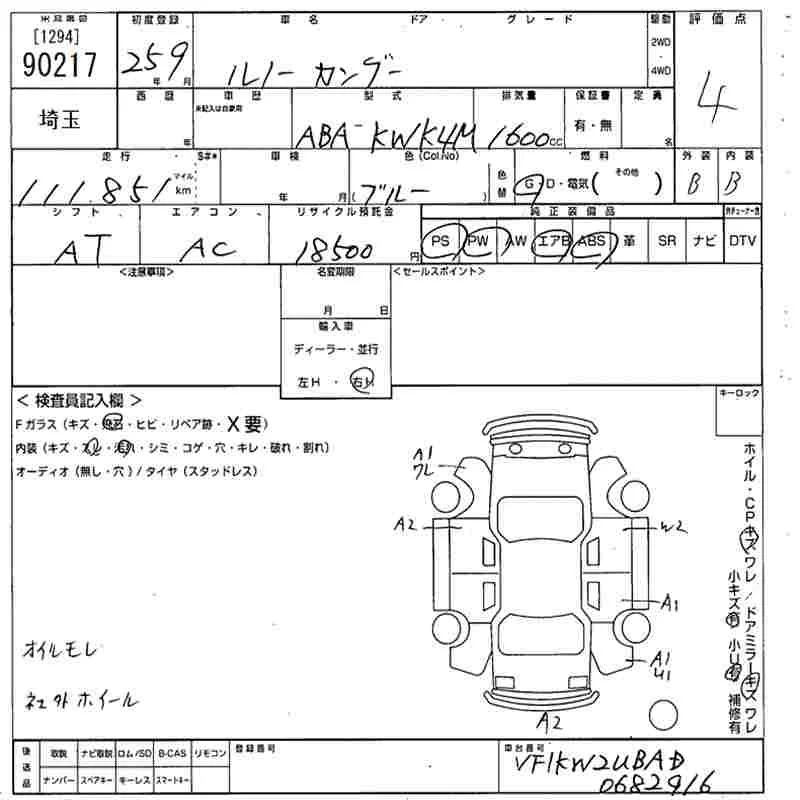 [1294]
90217
埼玉
初度登録
259
年 月
車名 ドア グレード
ルノー カングー
駆動
2WD
・
4WD
評価点
4
西暦
年
車歴
※記入は自家用
型式
ABA-KWK4M
排気量
1600cc
保証書
有・無
定員
名
走行 S#*
111.851
マイル
km
車検
年 月
色(Col.No)
(ブルー )
色替
燃料
G・D・電気( その他 )
外装
B
内装
B
シフト
AT
エアコン
AC
リサイクル預託金
18500円
純正装備品
PS PW AW エアB ABS 革 SR ナビ DTV
<注意事項>
名変期限
月 日
輸入車
ディーラー・並行
左H ・ 右H
<セールスポイント>
キーロック
<検査員記入欄>
Fガラス(キズ・飛石・ヒビ・リペア跡・X要)
内装(キズ・スレ・汚れ・シミ・コゲ・穴・キレ・破れ・割れ)
オーディオ(無し・穴)/タイヤ(スタッドレス)
A1
ワレ
A2
W2
A1
A1
U1
A2
ホイル・CPキズワレ/ドアミラーキズワレ
小キズ有 小U有 補修有
オイルモレ
社外ホイール
後送品
取説 ナビ取説 ロム/SD B-CAS リモコン
ナンバー スペアキー キーレス スマートキー
登録番号
車台番号
VF1KW2UBAD
0682916